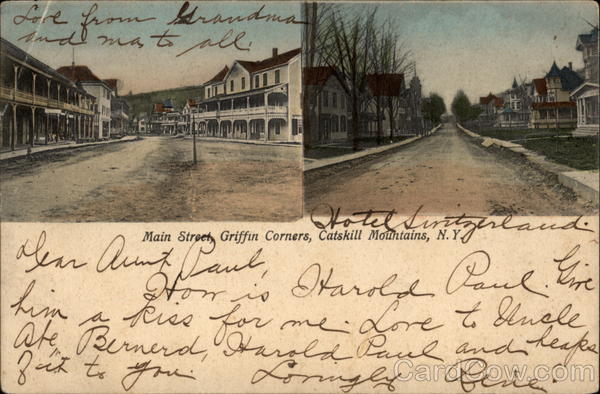 Love from Grandma
and ma to all.
Hotel Switzerland.
Main Street, Griffin Corners, Catskill Mountains, N.Y.
Dear Aunt Paul,
How is Harold Paul. Give
him a kiss for me. Love to Uncle
Abe, Bernerd, Harold Paul and heaps
of it to you. Lovingly Rene.
CardCow.com